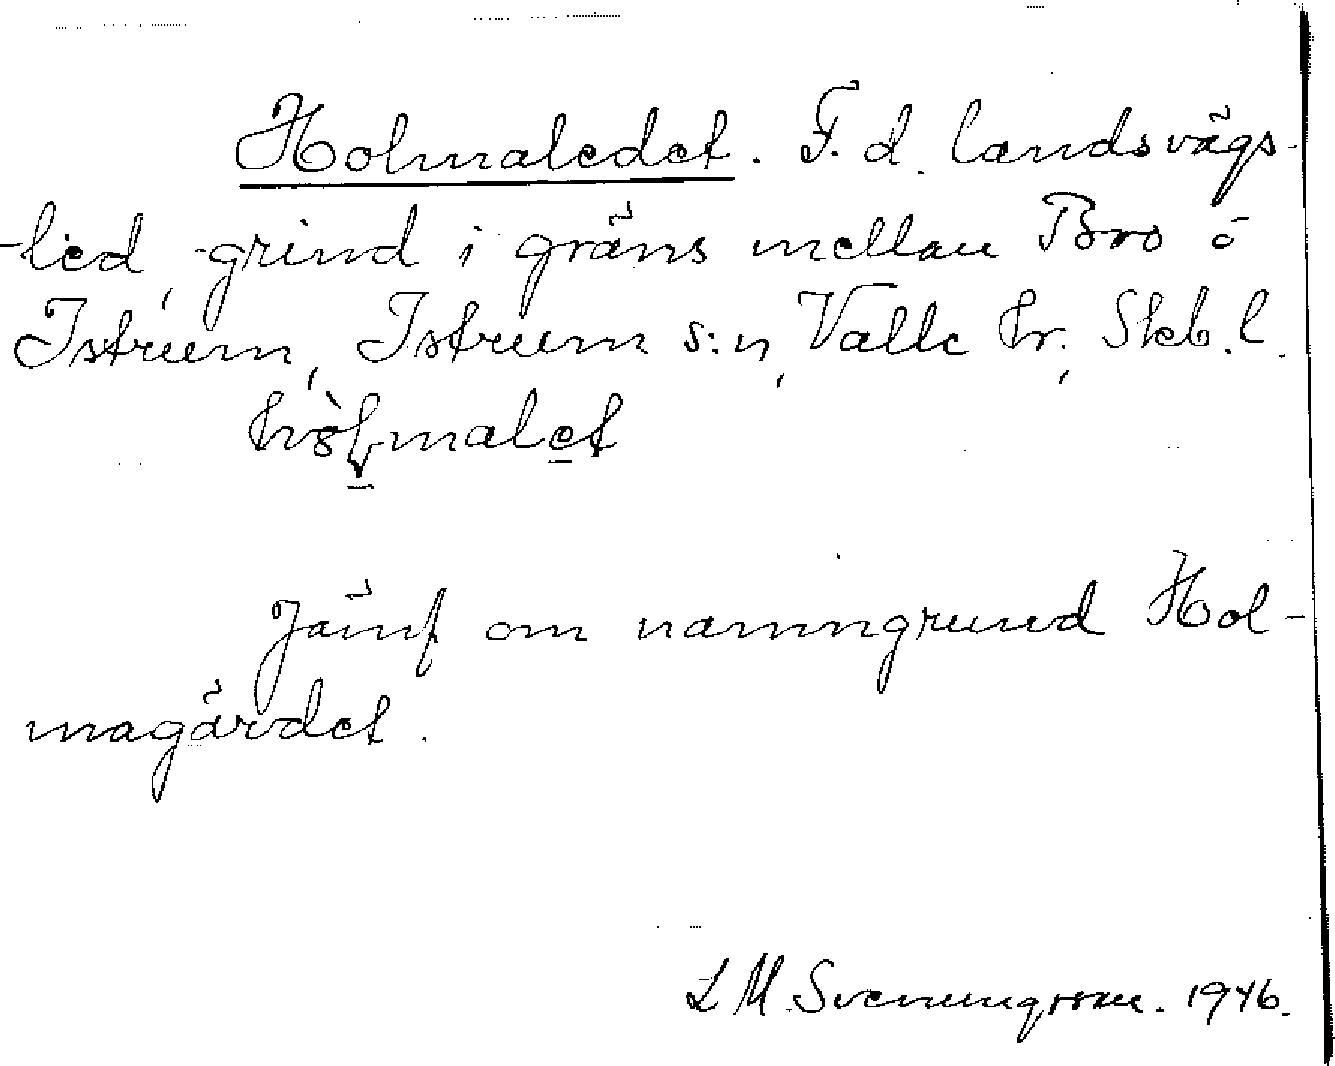 Holmaledet. F. d. landsvägs-
-led, -grind i gräns mellan Bro o
Istrum, Istrum s:n, Valle hr, Skb. l.
Jämf om namngrund Hol-
magärdet.
L M Svenungsson. 1946.